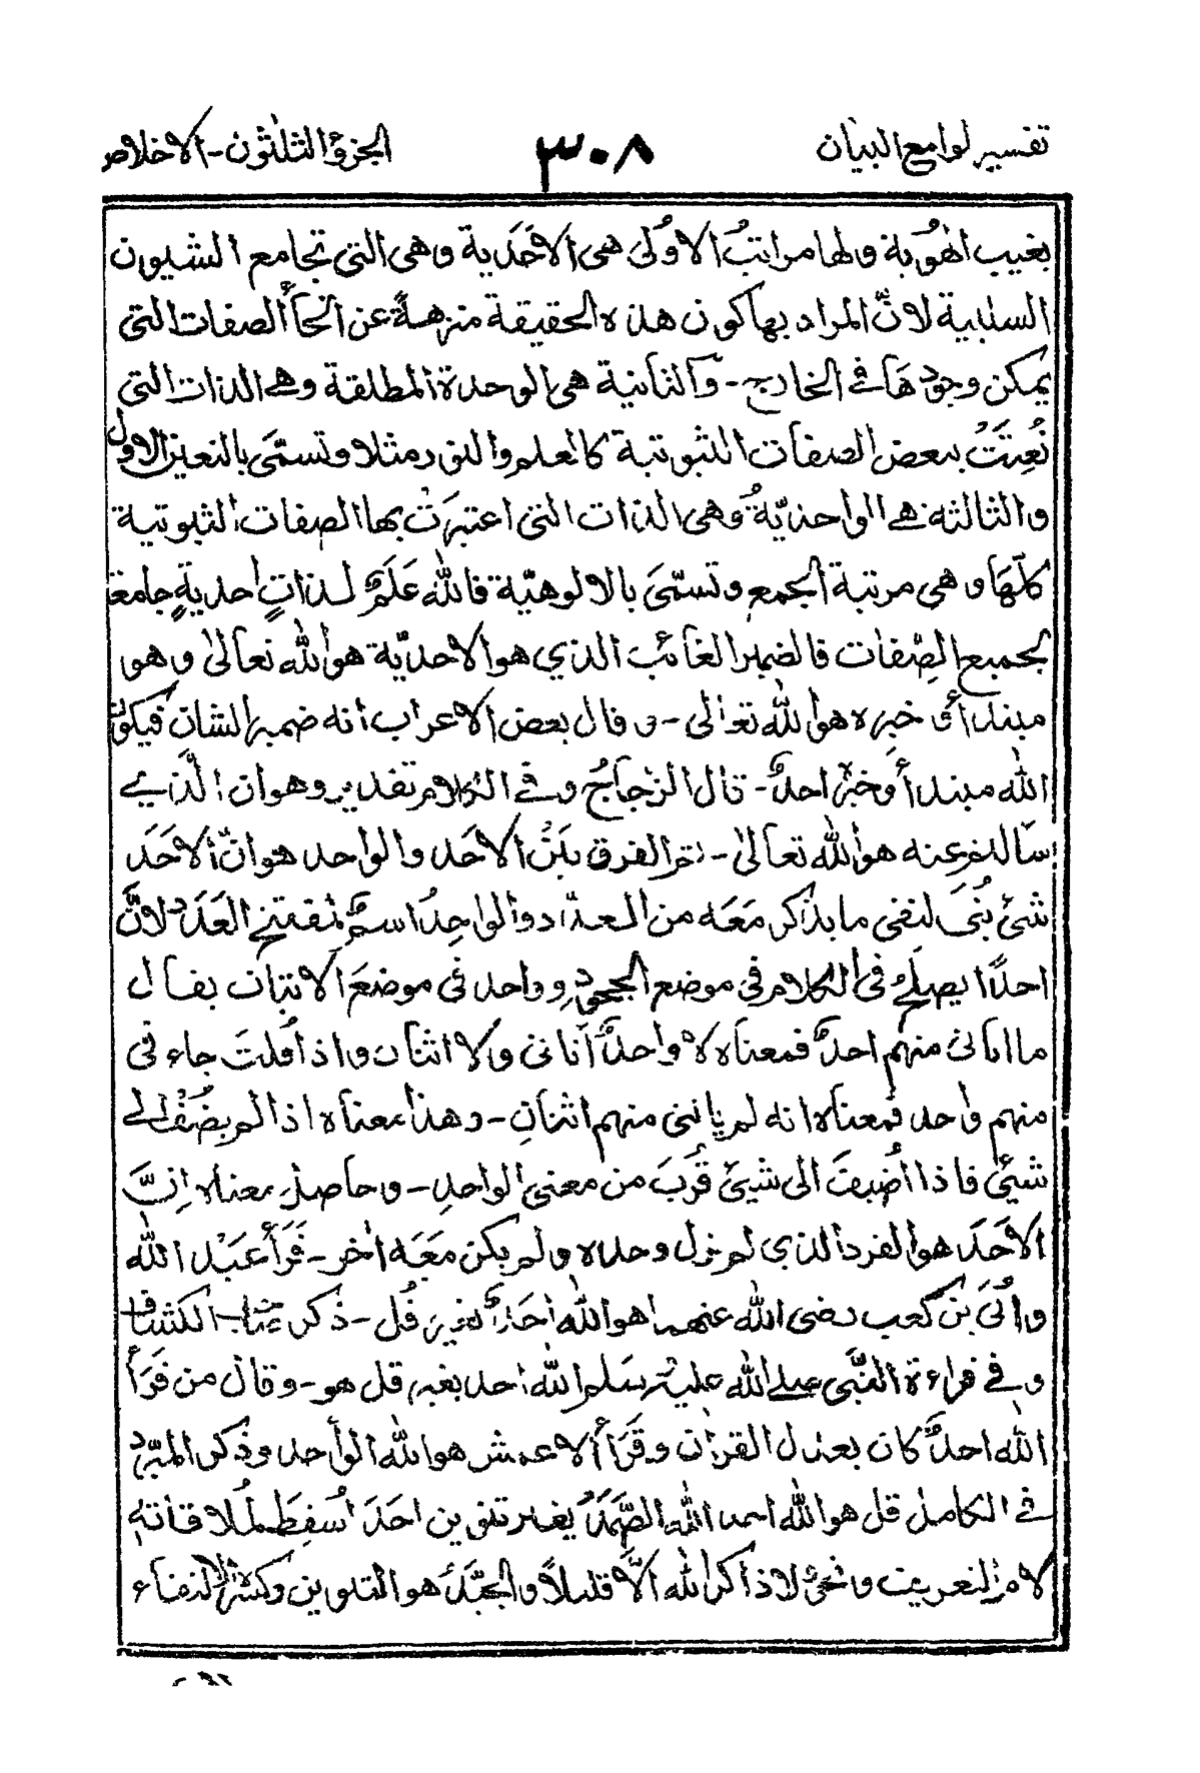 تفسير لوامع البيان ٣٠٨ الجزؤ الثلثون - الاخلاص
بغيب الهُوية ولها مراتبُ الاُولىٰ هى الاَحَدية وهى التى تجامع الشيون
السلبية لانّ المراد بها كون هذه الحقيقة منزهةً عن انحاأ الصفات التى
يمكن وجودهَا فى الخارج - وَالثانية هى الوحدة المطلقة وهى الذات التى
نُعِتَتُ ببعض الصفات الثبوتية كالعلم والنور مثلا وتسمّىَ بالتعين الاول
والثالثه هى الواحديّةُ وهى الذات التى اعتبرَت بها الصفات الثبوتية
كلّهَا وهى مرتبة الجمع وتسمّىَ بالالوهيّة فاللّٰه عَلَمٌ لذاتٍ احديةٍ جامعة
لجميع الصِّفات فالضمير الغائب الذي هو الاحديّة هو اللّٰه تعالىٰ وهو
مبتدأ و خبره هو اللّٰه تعٰالى - و قال بعض الاعراب انه ضمير الشان فيكون
اللّٰه مبتدأ وخبرٌه احدٌ - قال الزجاجُ وفى الكلام تقدير وهو ان الَّذي
سالتم عنه هو اللّٰه تعالىٰ - ثم الفرق بَيْنَ الاحَد والواحد هو انّ الاَحَدَ
شئ بُنىَ لنفى ما يذكر مَعَه من العدد والواحِدُ اسمٌ لمفتتح العَدَد لانَّ
احدًا يصلحُ فى الكلام فى موضع الجحود و واحد فى موضعَ الاثبات يقال
ما اتانى منهم احدٌ فمعناه لا واحدٌ أتانى ولا اثنان واذا قُلتَ جاءنى
منهم واحد فمعناه انه لم ياتنى منهم اثنانِ - وهذا معناه اذا لم يضف الى
شيئ فاذا اُضيفَ الى شيئ قَرُبَ من معنى الواحدِ - وحاصل معناه اِنَّ
الاَحَدَ هو الفرد الذي لم يزل وحده ولم يكن مَعَه اٰخر - قَرَأَ عَبْد اللّٰه
واُبَىّ بْن كعب رضى اللّٰه عنهما هو اللّٰه احَدٌ بغير قُل - ذكر صاحب الكشاف
و فى قراءة النَّبى صلى اللّٰه عليه وسَلم اللّٰه احد بغير قل هو - وقال من قَرَأَ
اللّٰه احدٌ كان يعدل القرآن وقَرَأَ الاعمش هو اللّٰه الواحد وذكر المبرّد
فى الكامل قل هو اللّٰه احد اللّٰه الصَّمَدُ بغير تنوين احَدَ اُسقِطَ لملاقاته
لام التعريف ونحوُ لا ذاكر اللّٰه اِلَّا قليلاً والجيّد هو التنوين وكسرة لالتقاء